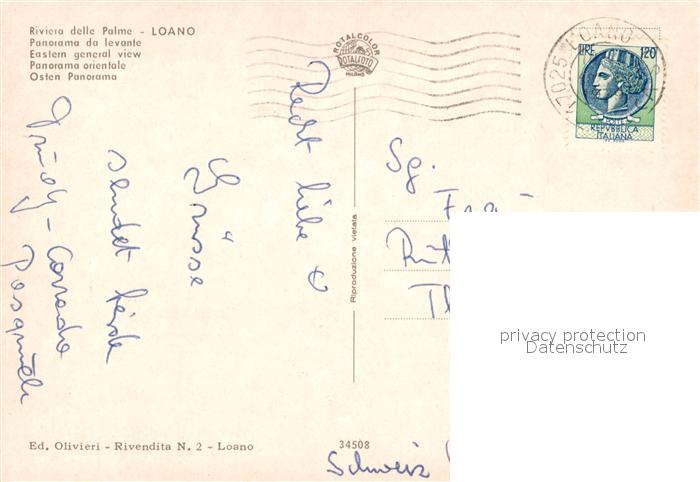 Riviera delle Palme - LOANO
Panorama da levante
Eastern general view
Panorama orientale
Osten Panorama
ROTALCOLOR
ROTALFOTO
MILANO
17025 LOANO
LIRE 120
REPVBBLICA
ITALIANA
Recht liebe
Grüsse
sendet
Trudy - Corrado
Riproduzione vietata
Sg
Schweiz
privacy protection
Datenschutz
Ed. Olivieri - Rivendita N. 2 - Loano
34508